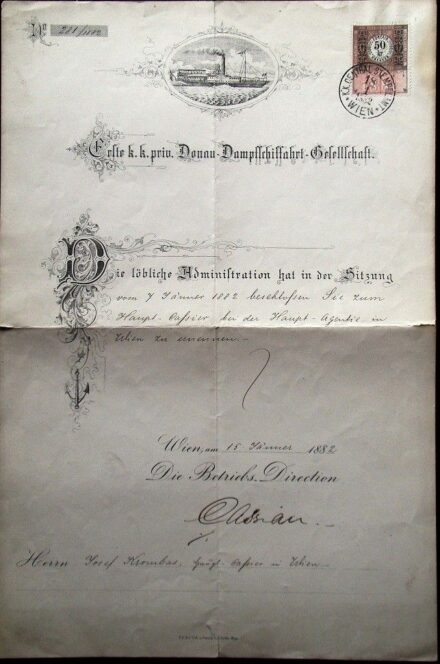 No 281/1882
50
WIEN
Erste k. k. priv. Donau-Dampfschiffahrt-Gesellschaft.
Die löbliche Administration hat in der Sitzung
vom 7 Jänner 1882 beschlossen Sie zum
Haupt-Cassier bei der Haupt-Agentie in
Wien zu ernennen.-
Wien, am 15 Jänner 1882
Die Betriebs-Direction
Herrn Josef Krombas, Cassier in Wien.